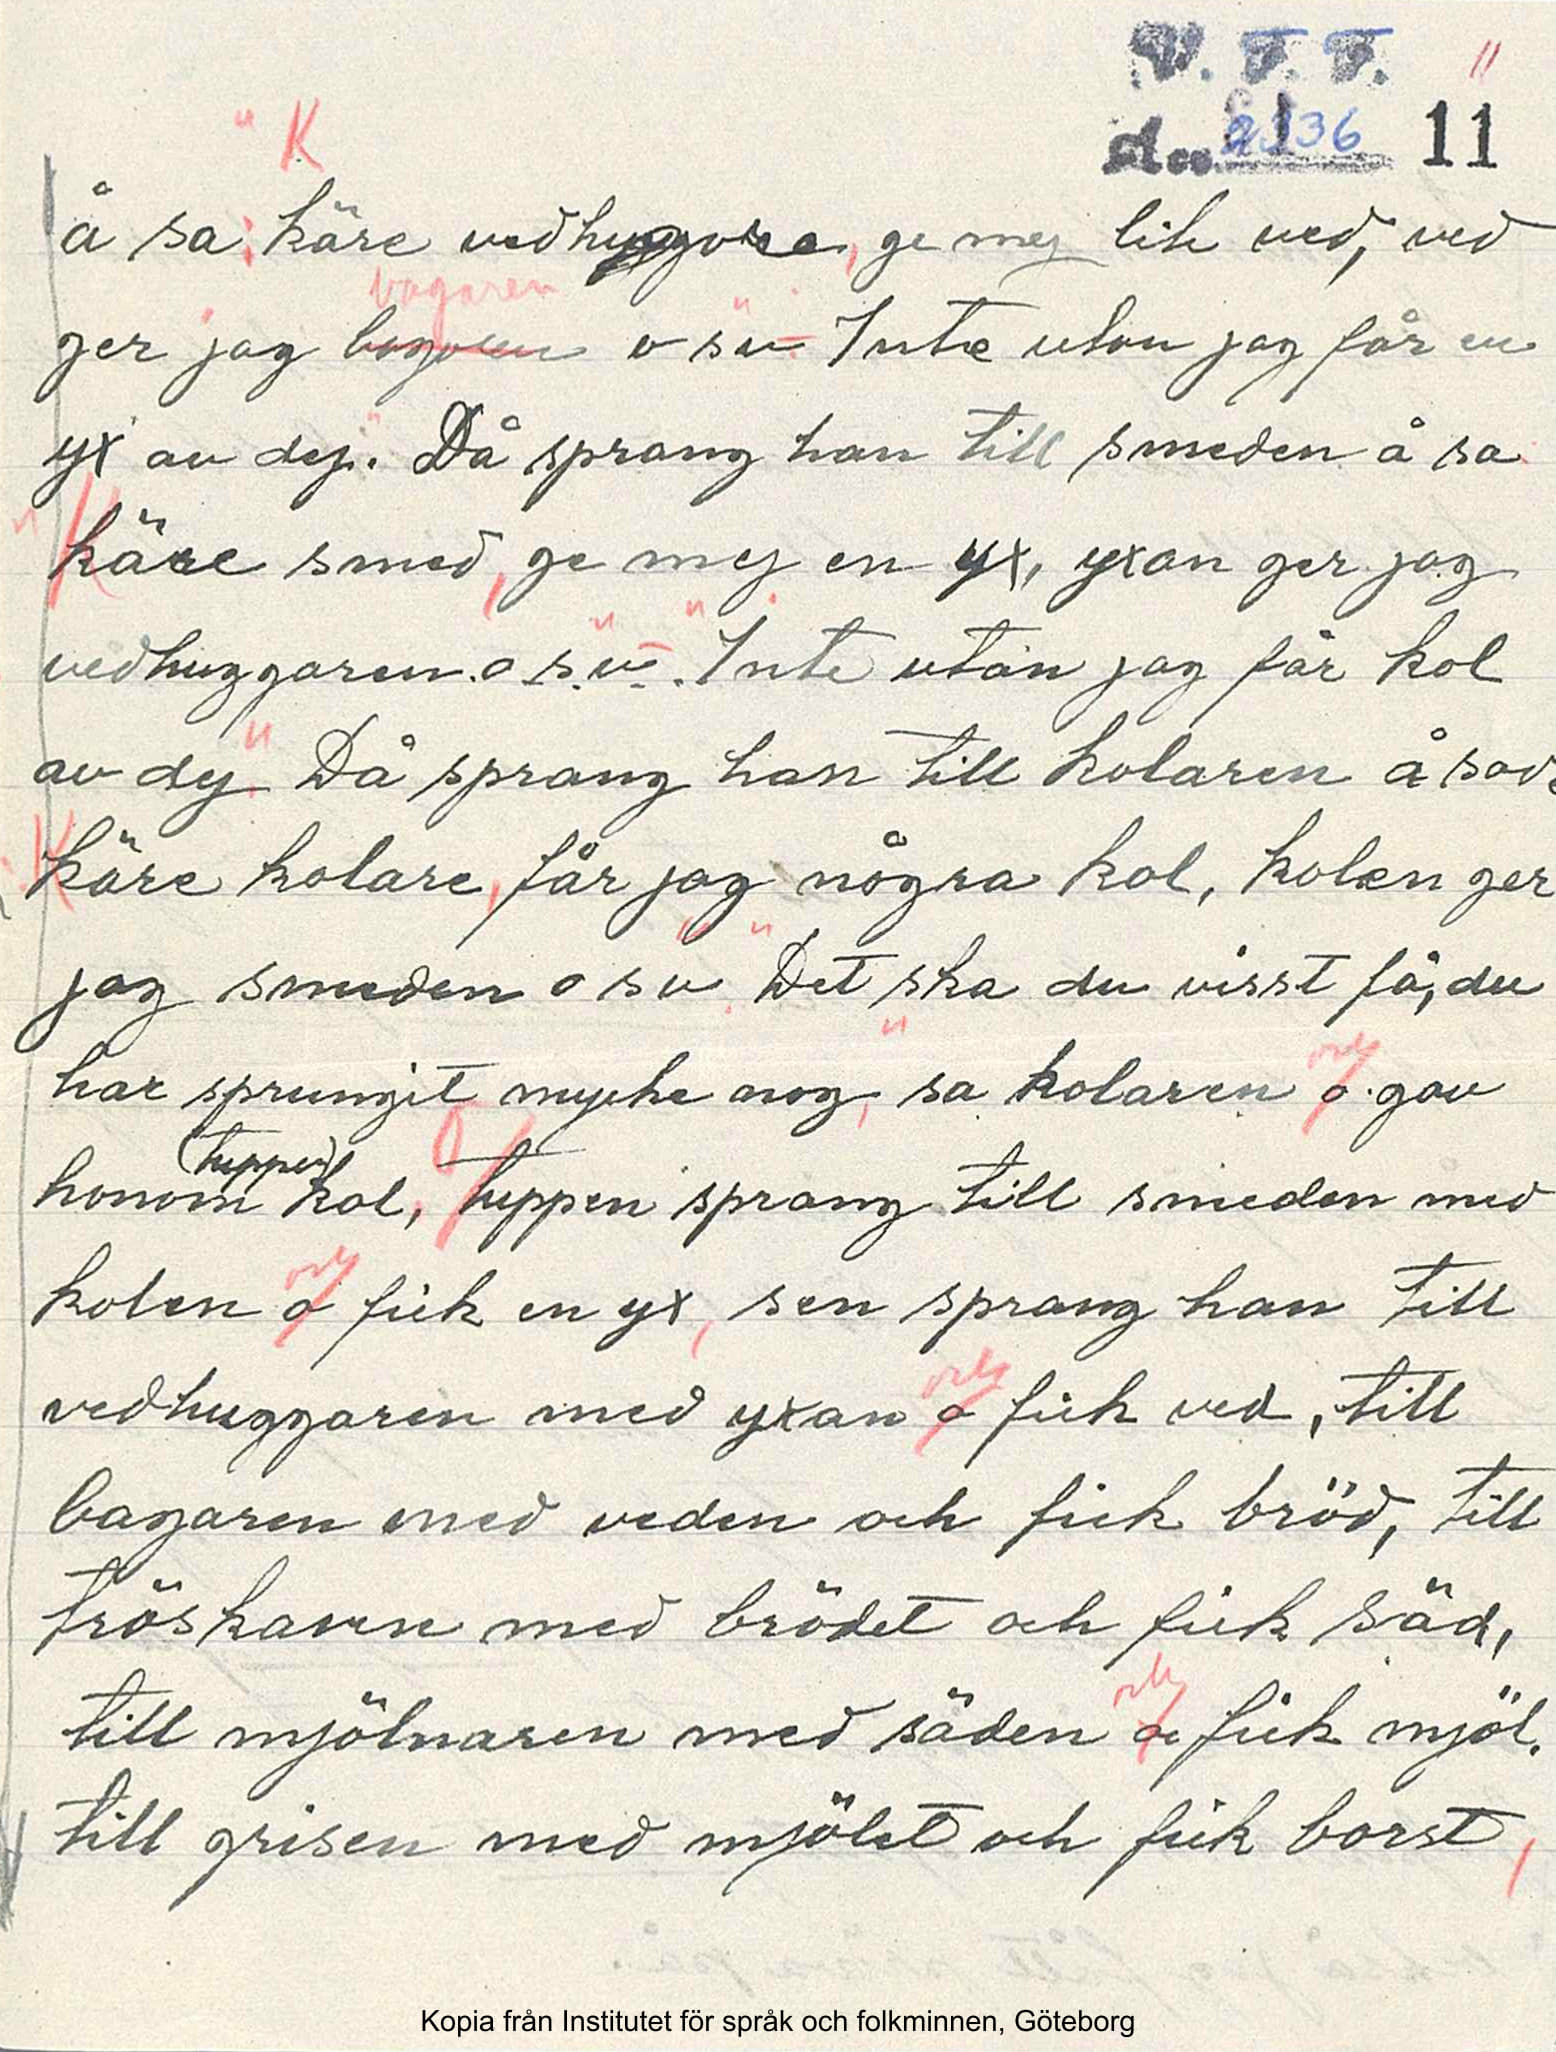 V. F. F.
11
Acc. 2336 11
" K
å sa: käre vedhuggare, ge mej lik ved, ved
bagaren
ger jag bagaren o s v. " Inte utan jag får en
yx av dej." Då sprang han till smeden å sa
" Käre smed, ge mej en yx, yxan ger jag
vedhuggaren o s v. " " Inte utan jag får kol
av dej." Då sprang han till kolaren å sa:
" Käre kolare, får jag några kol, kolen ger
jag smeden o s v. " " Det ska du visst få, du
har sprungit myche nog," sa kolaren och gav
(tuppen)
honom kol, Tuppen sprang till smeden med
kolen och fick en yx, sen sprang han till
vedhuggaren med yxan och fick ved, till
bagaren med veden och fick bröd, till
tröskaren med brödet och fick säd,
till mjölnaren med säden och fick mjöl.
till grisen med mjölet och fick borst,
Kopia från Institutet för språk och folkminnen, Göteborg